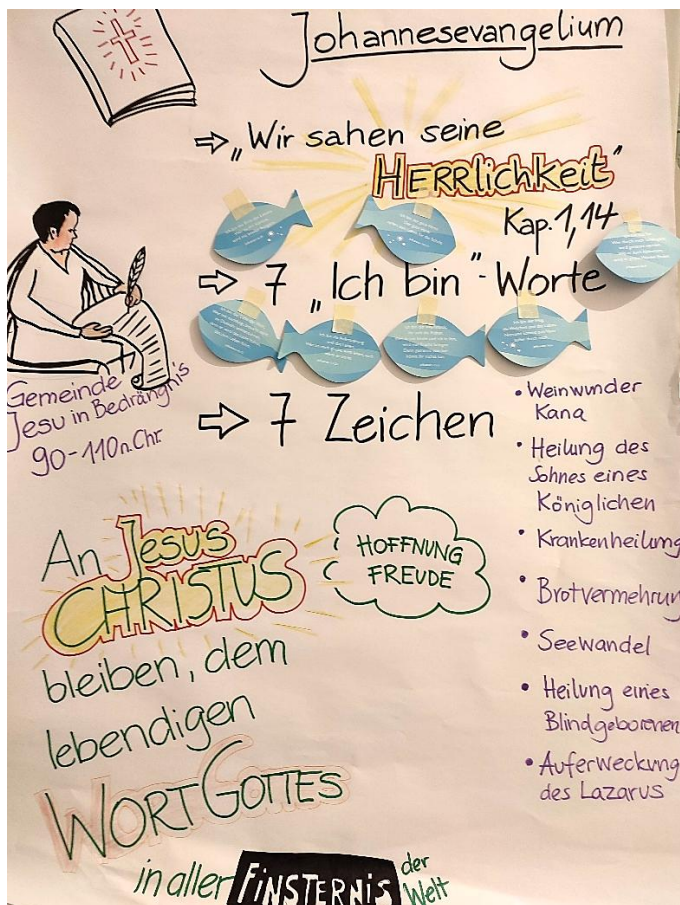 Johannesevangelium
⇨ „Wir sahen seine
HERRlichkeit"
Kap. 1,14
⇨ 7 „Ich bin"-Worte
Gemeinde
Jesu in Bedrängnis
90-110 n. Chr.
⇨ 7 Zeichen
• Weinwunder
Kana
• Heilung des
Sohnes eines
Königlichen
• Krankenheilung
• Brotvermehrun
• Seewandel
• Heilung eines
Blindgeborenen
• Auferweckung
des Lazarus
An Jesus
CHRISTUS
bleiben, dem
lebendigen
WORT GOTTES
in aller FINSTERNIS der
Welt
HOFFNUNG
FREUDE